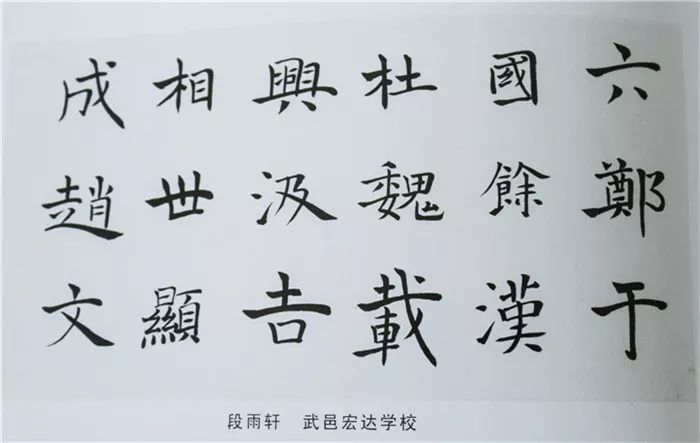 六鄭于
國餘漢
杜魏載
興汲吉
相世顯
成趙文
段雨轩 武邑宏达学校